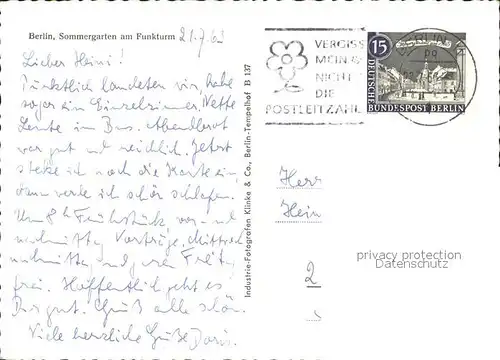 Berlin, Sommergarten am Funkturm 21.7.63
Lieber Heini!
Pünktlich landeten wir, habe
sogar ein Einzelzimmer. Nette
Leute im Bus. Abendbrot
war gut und reichlich. Jetzt
stecke ich noch die Karte ein,
dann werde ich schön schlafen.
Um 8h Frühstück, vor- und
nachmittag Vorträge, Mittwoch
nachmittag und Freitag
frei. Hoffentlich geht es
Dir gut. Grüß alle schön.
Viele herzliche Grüße Doris.
Industrie-Fotografen Klinke & Co., Berlin-Tempelhof B 137
VERGISS
MEIN
NICHT
DIE
POSTLEITZAHL
BERLIN
15
DEUTSCHE
BUNDESPOST BERLIN
Herr
Hein
2
privacy protection
Datenschutz